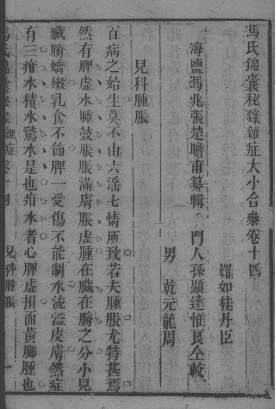 馮氏錦囊秘錄雜症大小合參卷十四
羅如桂丹臣
海鹽馮兆張楚瞻甫纂輯 門人孫顯達惟良仝較
男 乾元龍周
兒科腫脹
百病之始生莫不由六淫七情所致若夫腫脹尤特甚焉
然有脾虛水腫鼓脹脹滿膚脹虛腫在臟在腑之分小兒
臟腑嬌嫩乳食不節脾一受傷不能制水流溢皮膚然症
有三疳水積水驚水是也疳水者心脾虛損面黃腳腫也
兒科腫脹